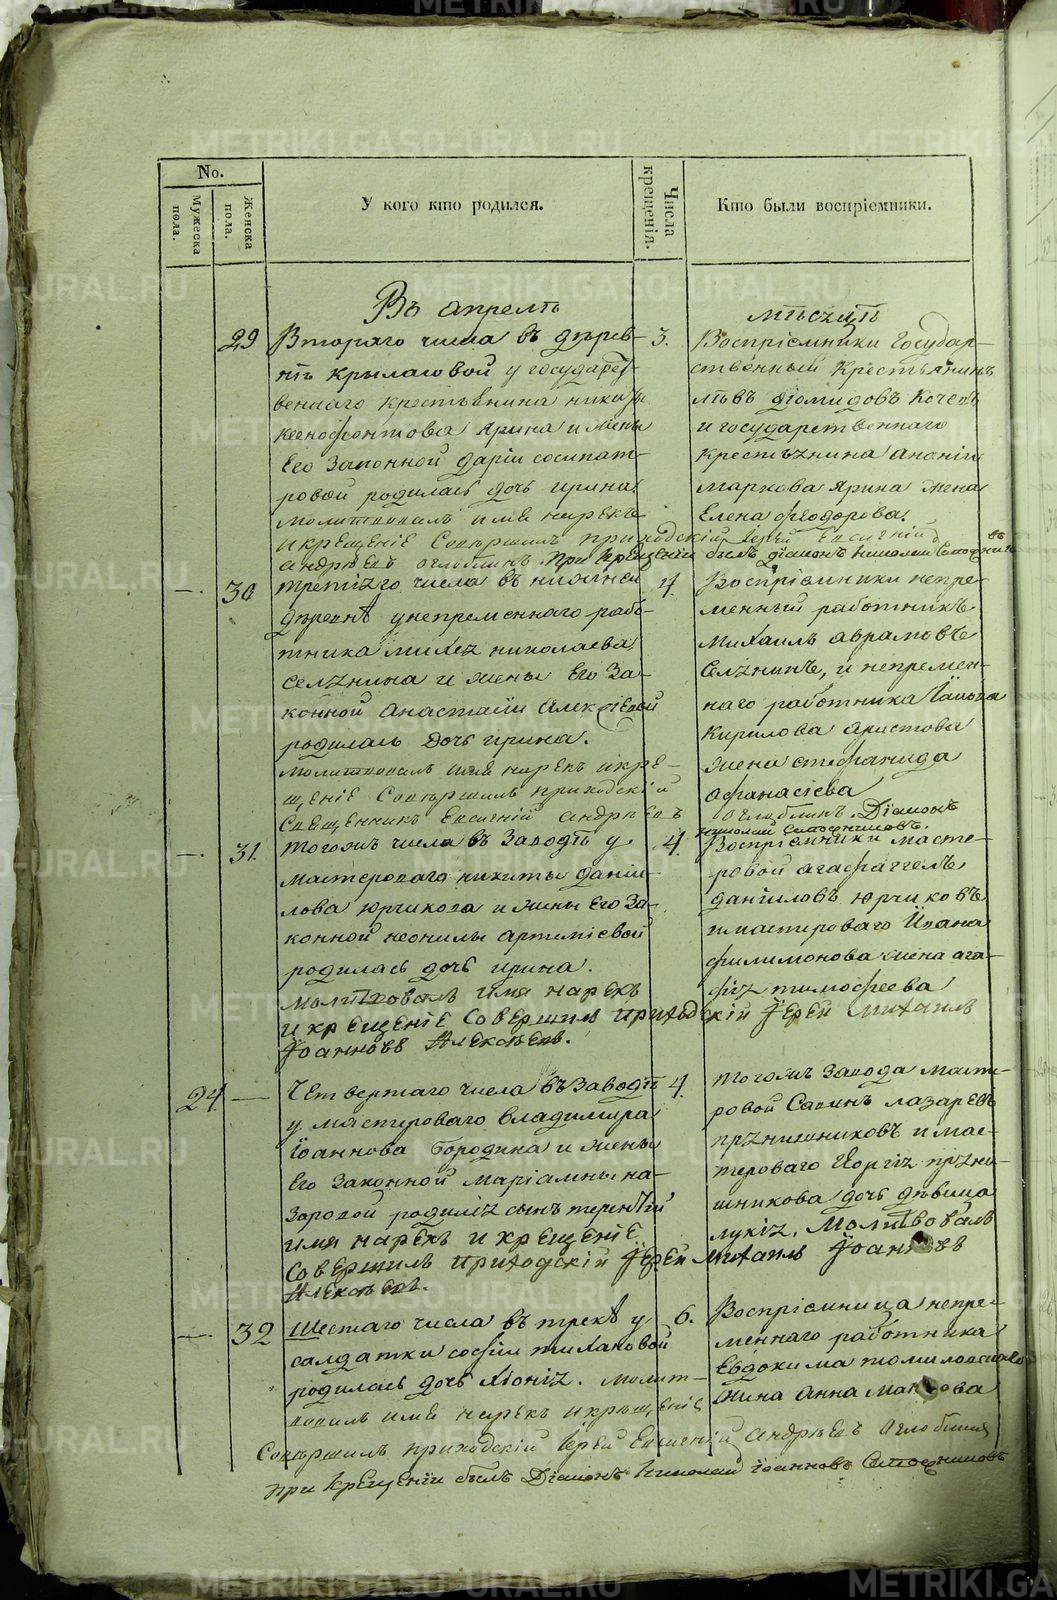 No.
Мужеска пола.
Женска пола.
У кого кто родился.
Числа крещенія.
Кто были воспріемники.
Въ апрелѣ
мѣсяцѣ
29
Втораго числа въ дерев-
нѣ крылатовой у государст-
веннаго крестьянина никиты
ксенофонтова ярина и жены
Его Законной даріи сосипат-
ровой родилась дочь ирина.
молитвовалъ имя нарекъ
и крещеніе Совершилъ приходскій Іерей Евгеній
андреевъ оглоблинъ. При крещеніи былъ діаконъ николай
3.
Воспріемники Государ-
ственный крестьянинъ
лѣвъ діомидовъ
и государственнаго
крестьянина ананіи
маркова ярина жена
Елена феодорова.
—. 30
третіяго числа въ нижней
деревнѣ у непременнаго рабо-
тника михея николаева
селянина и жены Его За-
конной анастасіи алексіевой
родилась дочь ирина.
молитвовалъ имя нарекъ и кре-
щеніе Совершилъ приходскій
Священникъ Евгеній андреевъ
4.
Воспріемники непре-
менный работникъ
михаилъ аврамовъ
Селянинъ, и непремен-
наго работника Іакова
кирилова аристова
жена стефанида
афанасіева
оглоблинъ. Діаконъ
николай
—. 31.
тогожъ числа въ Заводѣ у
мастероваго никиты даніи-
лова юрчикова и жены Его За-
конной неонилы артеміевой
родилась дочь ирина.
молитвовалъ имя нарекъ
и крещеніе совершилъ приходскій Іерей михаилъ
Іоанновъ Алексѣевъ.
4.
Воспріемники масте-
ровой агафаггелъ
даніиловъ юрчиковъ
и мастероваго Іоанна
филимонова жена ага-
фія тимофеева
24 —
Четвертаго числа въ Заводѣ
у мастероваго владимира
іоаннова бородина и жены
Его Законной маріамны на-
заровой родился сынъ терентій
имя нарекъ и крещеніе
совершилъ приходскій Іерей михаилъ Іоанновъ
Алексѣевъ.
4.
тогожъ завода масте-
ровой Савинъ лазаревъ
пряничниковъ и мас-
тероваго Георгія пряни-
шникова дочь девица
лукія. Молитвовалъ
—. 32
Шестаго числа въ трекѣ у
салдатки софіи
родилась дочь хіонія. молит-
вовалъ имя нарекъ и крещеніе
Совершилъ приходскій Іерей Евгеній андреевъ Оглоблинъ
при крещеніи былъ Діаконъ николай іоанновъ
6.
Воспріемница непре-
меннаго работника
Евдокима
жина анна